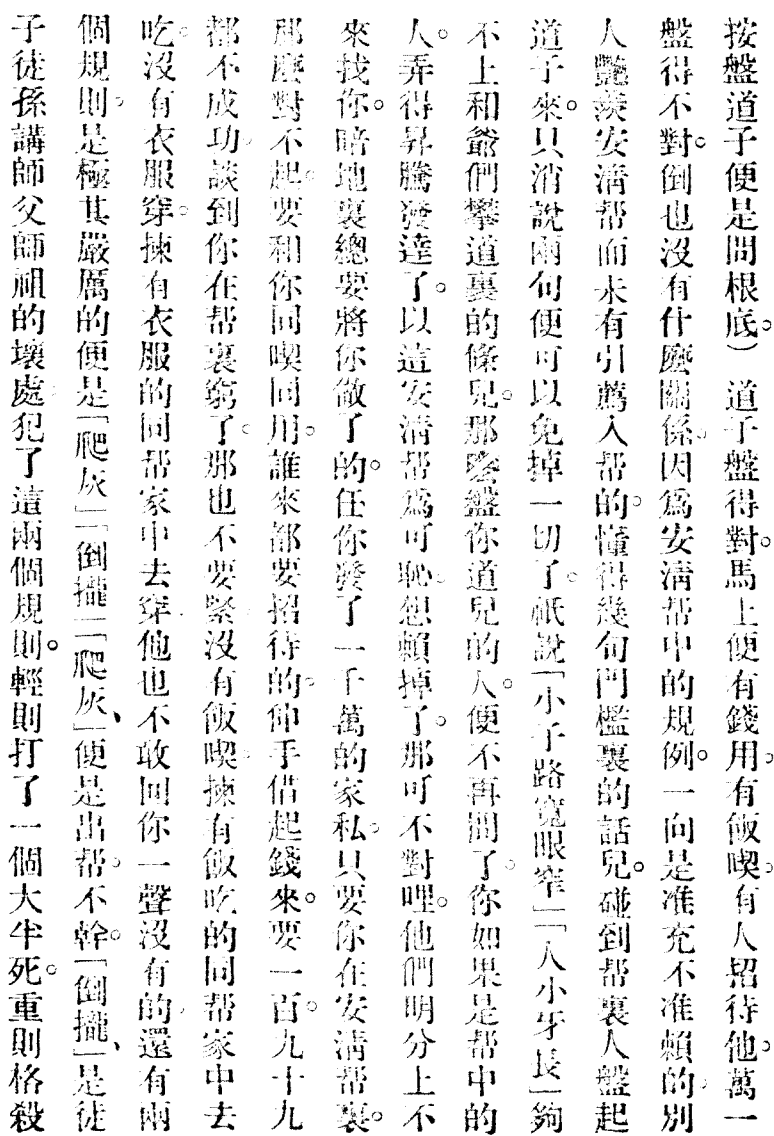 按盤道子便是問根底。）道子盤得對。馬上便有錢用。有飯喫。有人招待他。萬一
盤得不對。倒也沒有什麼關係。因爲安淸帮中的規例。一向是准充不准賴的。別
人艷羨安淸帮而未有引薦入帮的。懂得幾句門檻裏的話兒。碰到帮裏人盤起
道子來。只消說兩句便可以免掉一切了。祇說「小子路寬眼窄」「人小牙長」夠
不上和爺們攀道裏的條兒。那麼盤你道兒的人。便不再問了。你如果是帮中的
人。弄得昇騰發達了。以這安淸帮爲可恥。想賴掉了。那可不對哩。他們明分上不
來找你。暗地裏總要將你做了的。任你發了一千萬的家私。只要你在安淸帮裏。
那麼對不起。要和你同喫同用。誰來都要招待的。伸手借起錢來。要一百。九十九
都不成功。談到你在帮裏窮了。那也不要緊。沒有飯喫。揀有飯吃的同帮家中去
吃。沒有衣服穿。揀有衣服的同帮家中去穿。他也不敢回你一聲沒有的。還有兩
個規則。是極其嚴厲的便是「爬灰」「倒攏」「爬灰」、便是出帮。不幹。「倒攏」、是徒
子徒孫講師父師祖的壞處。犯了這兩個規則。輕則打了一個大半死。重則格殺